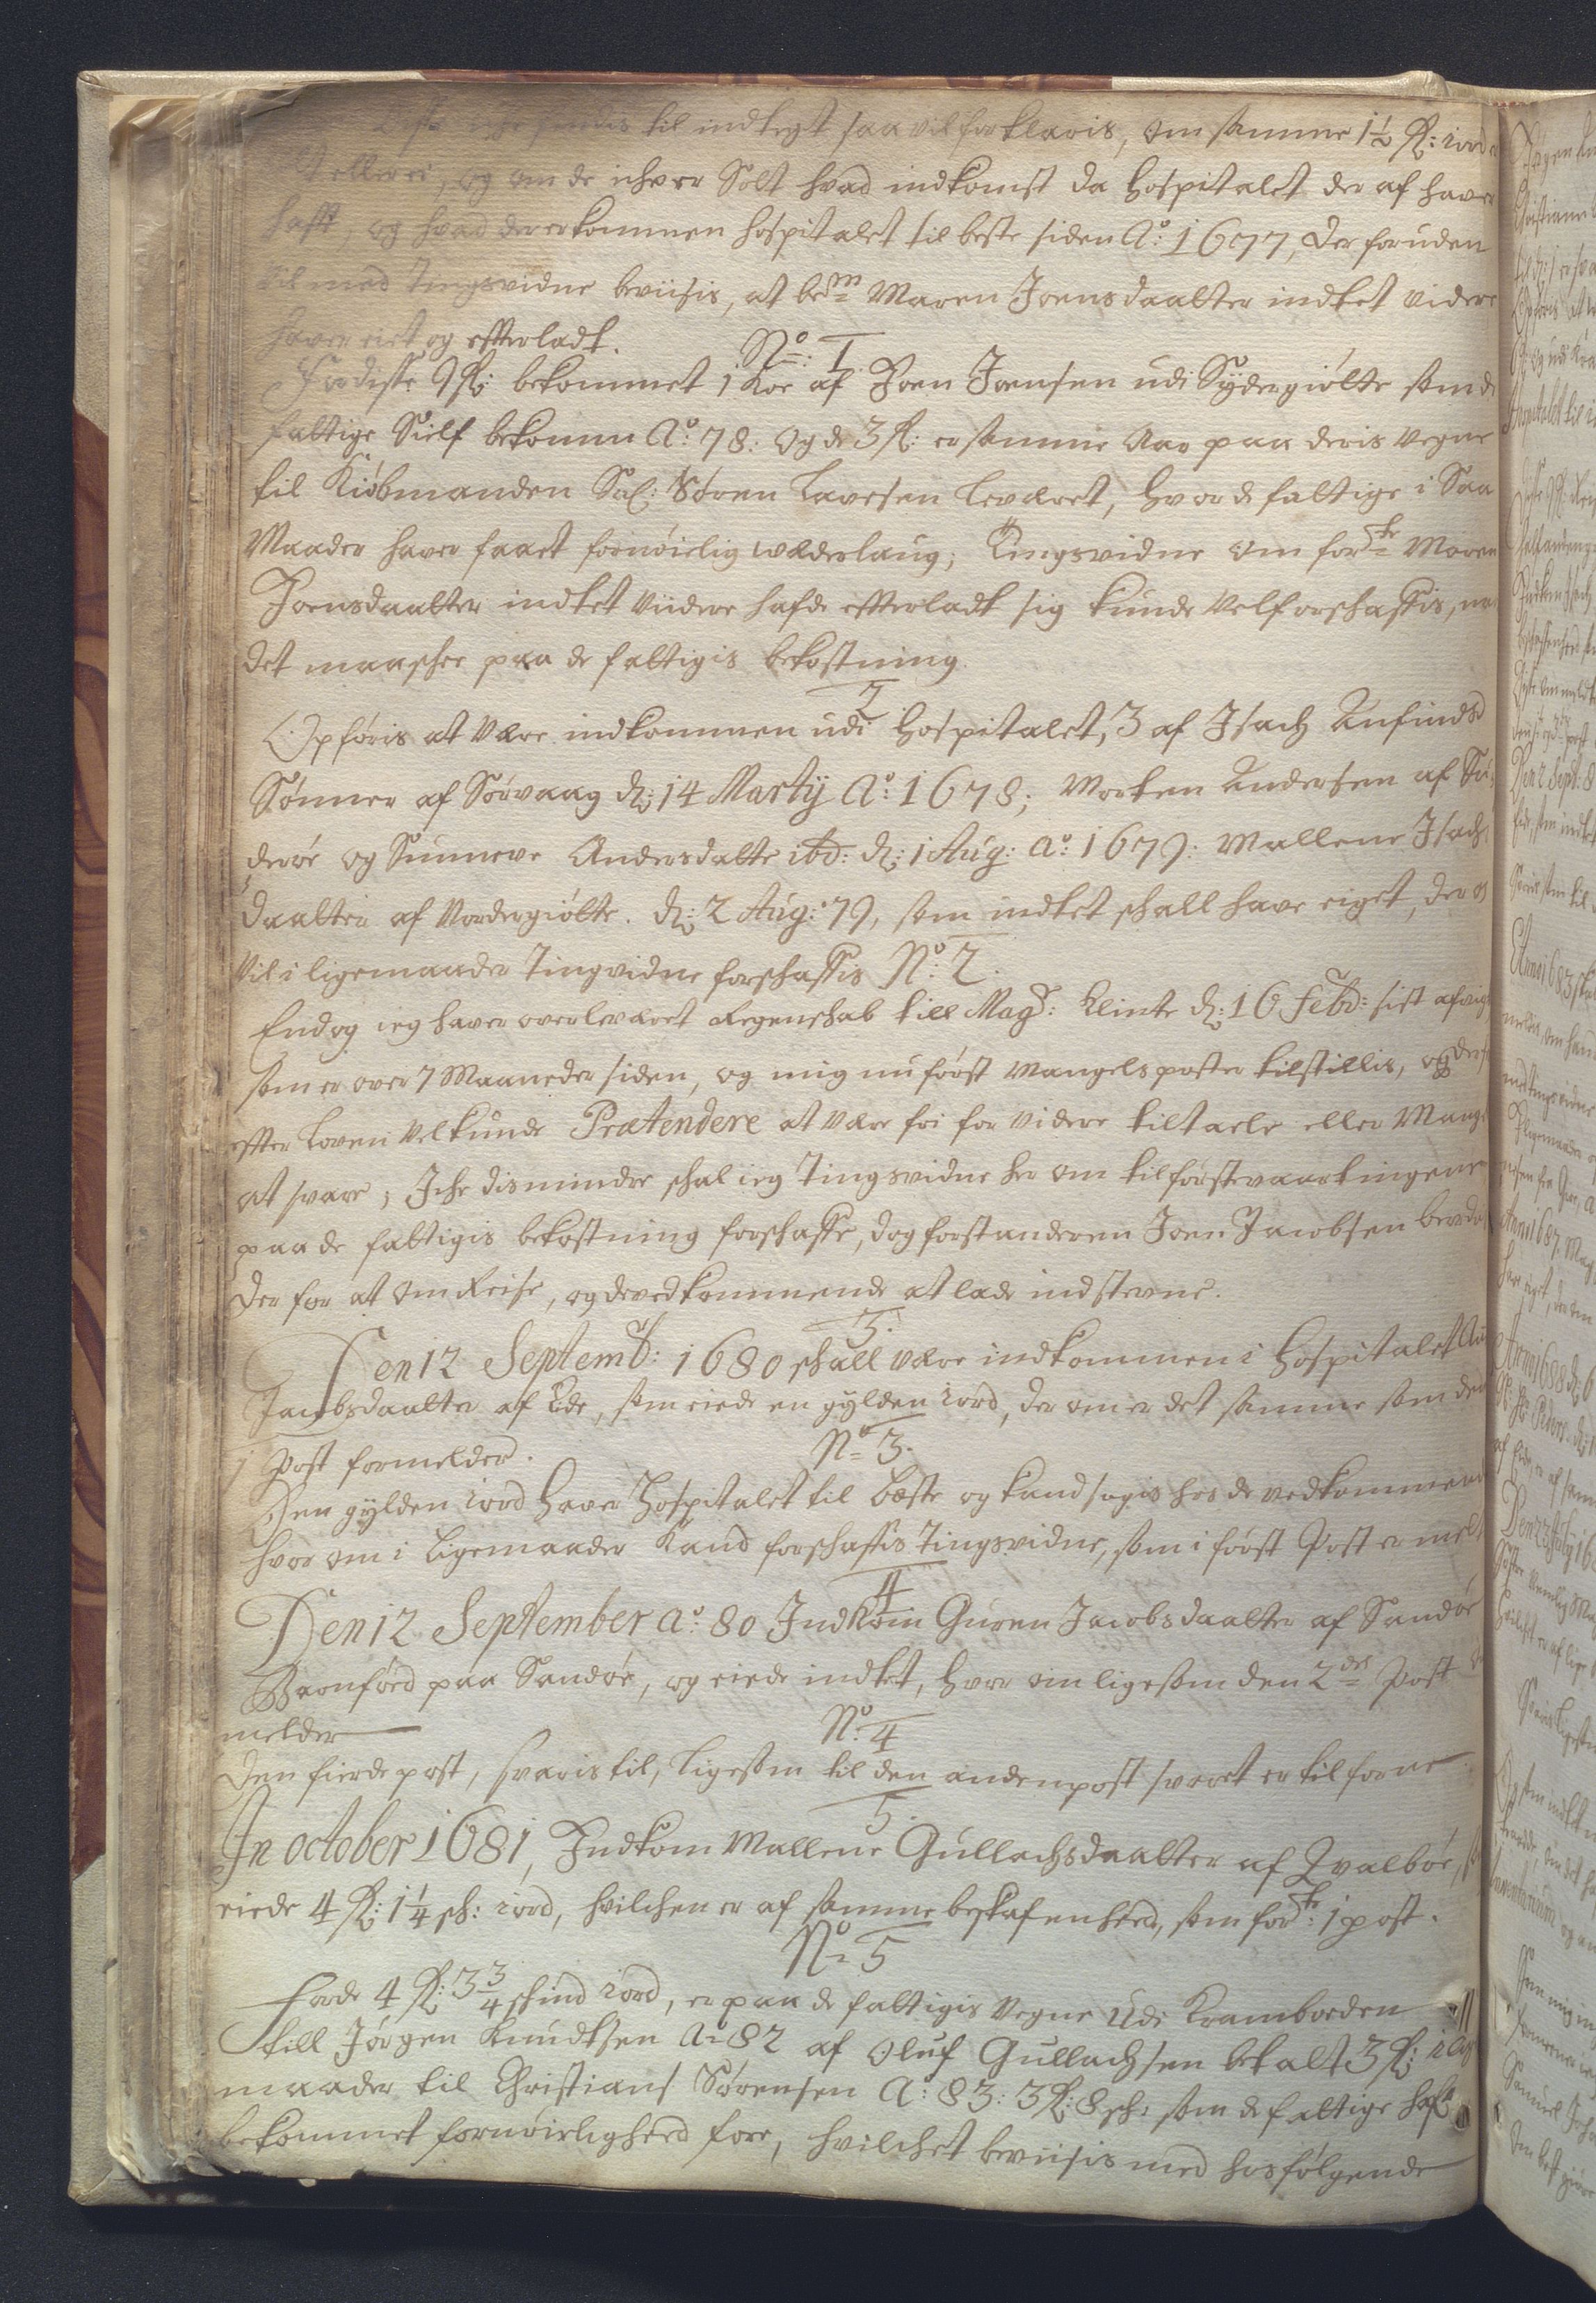 til indtegt saa vil forklaris, om samme 1½ Q: iord
eller ei og om de icke er Solt hvad indkomst da Hospitalet der af haver
hafft, og hvad der er kommen hospitalet til beste siden Aº: 1677, der foruden
vil med Tingsvidne beviisis, at bem: Maren Joensdaatter indtet videre
haver eiet og efterladt.
Nº: 1
For disse Q: bekommet 1 Koe af Joen Joensen udi Sydergiøtte som de
fattige Sielf bekomm Aº: 78: og de 3 Q: er samme Aar paa deris vegne
til Kiøbmanden Sal: Søren Lavesen leveret, hvor de fattige i Saa
Maader haver faaet fornøielig wederlaug; Tingsvidne om forste Maren
Joensdaatter indtet viidere hafde efterladt sig kunde vel forschaffis, naar
det maaschee paa de fattigis bekostning.
2
Opføris at være indkommen udi Hospitalet, 3 af Isach Anfinds
Sønner af Sørvaag d: 14 Martij Aº: 1678; Morten Andersen af Su
derøe og Sunneve Andersdatter ibd: d: 1 Aug: aº: 1679: Mallene Isach
daatter af Nordergiøtte. d: 2 Aug: 79, som indtet schall have eiget, der om
vil i ligemaader Tingvidne forschaffis Nº: 2.
Endog ieg haver overleveret Regenschab till Mag: Klinte d: 16 Febr: sist afvigt
som er over 7 Maaneder siden, og mig nu først Mangels poster tilstillis, og
efter Loven vel kunde Prætendere at være fri for videre tiltaele eller Mang
at svare; Iche dismindre schal ieg Tingsvidne her om til første vaartingene
paa de fattigis bekostning forschaffe, dog forstanderen Joen Jacobsen
der for at omReise, og de vedkommende at lade indstevne.
3.
Den 12 Septemb: 1680 schall være indkommen i Hospitalet
Jacobsdaatter af Eide, som eiede en gylden iord, der om er det samme som den
1 Post formelder.
Nº 3.
Den gylden iord haver Hospitalet til beste og kand søgis hos de vedkommen
hvor om i Ligemaader kand forschaffis Tingsvidne, som i først Post er melt
4
Den 12 September aº: 80 Indkom Guren Jacobsdaatter af Sandøe
Baonførd paa Sandøe, og eiede indtet, hvor om ligesom den 2den Post
melder
Nº: 4
Den fierde post, svaris til, ligesom til den anden post svaret er tilforne.
5.
In october 1681, Indkom Mallene Gullachsdaatter af Qvalbøe,
eiede 4 Q: 1¼ sch: iord, hvilchen er af samme beskafenhed, som forte: 1 post.
Nº 5
forde 4 Q: 3¾ schind iord, er paa de fattigis vegne Udi Kramboeden
till Jørgen Knudtsen Aº 82 af Oluf Gullachsen betalt 3 Q: i lige
maader til Christians Sørensen A: 83: 3 Q: 8 sch: som de fattige hafr
bekommet fornøieligheed fore, hvilchet beviisis med hosfølgende